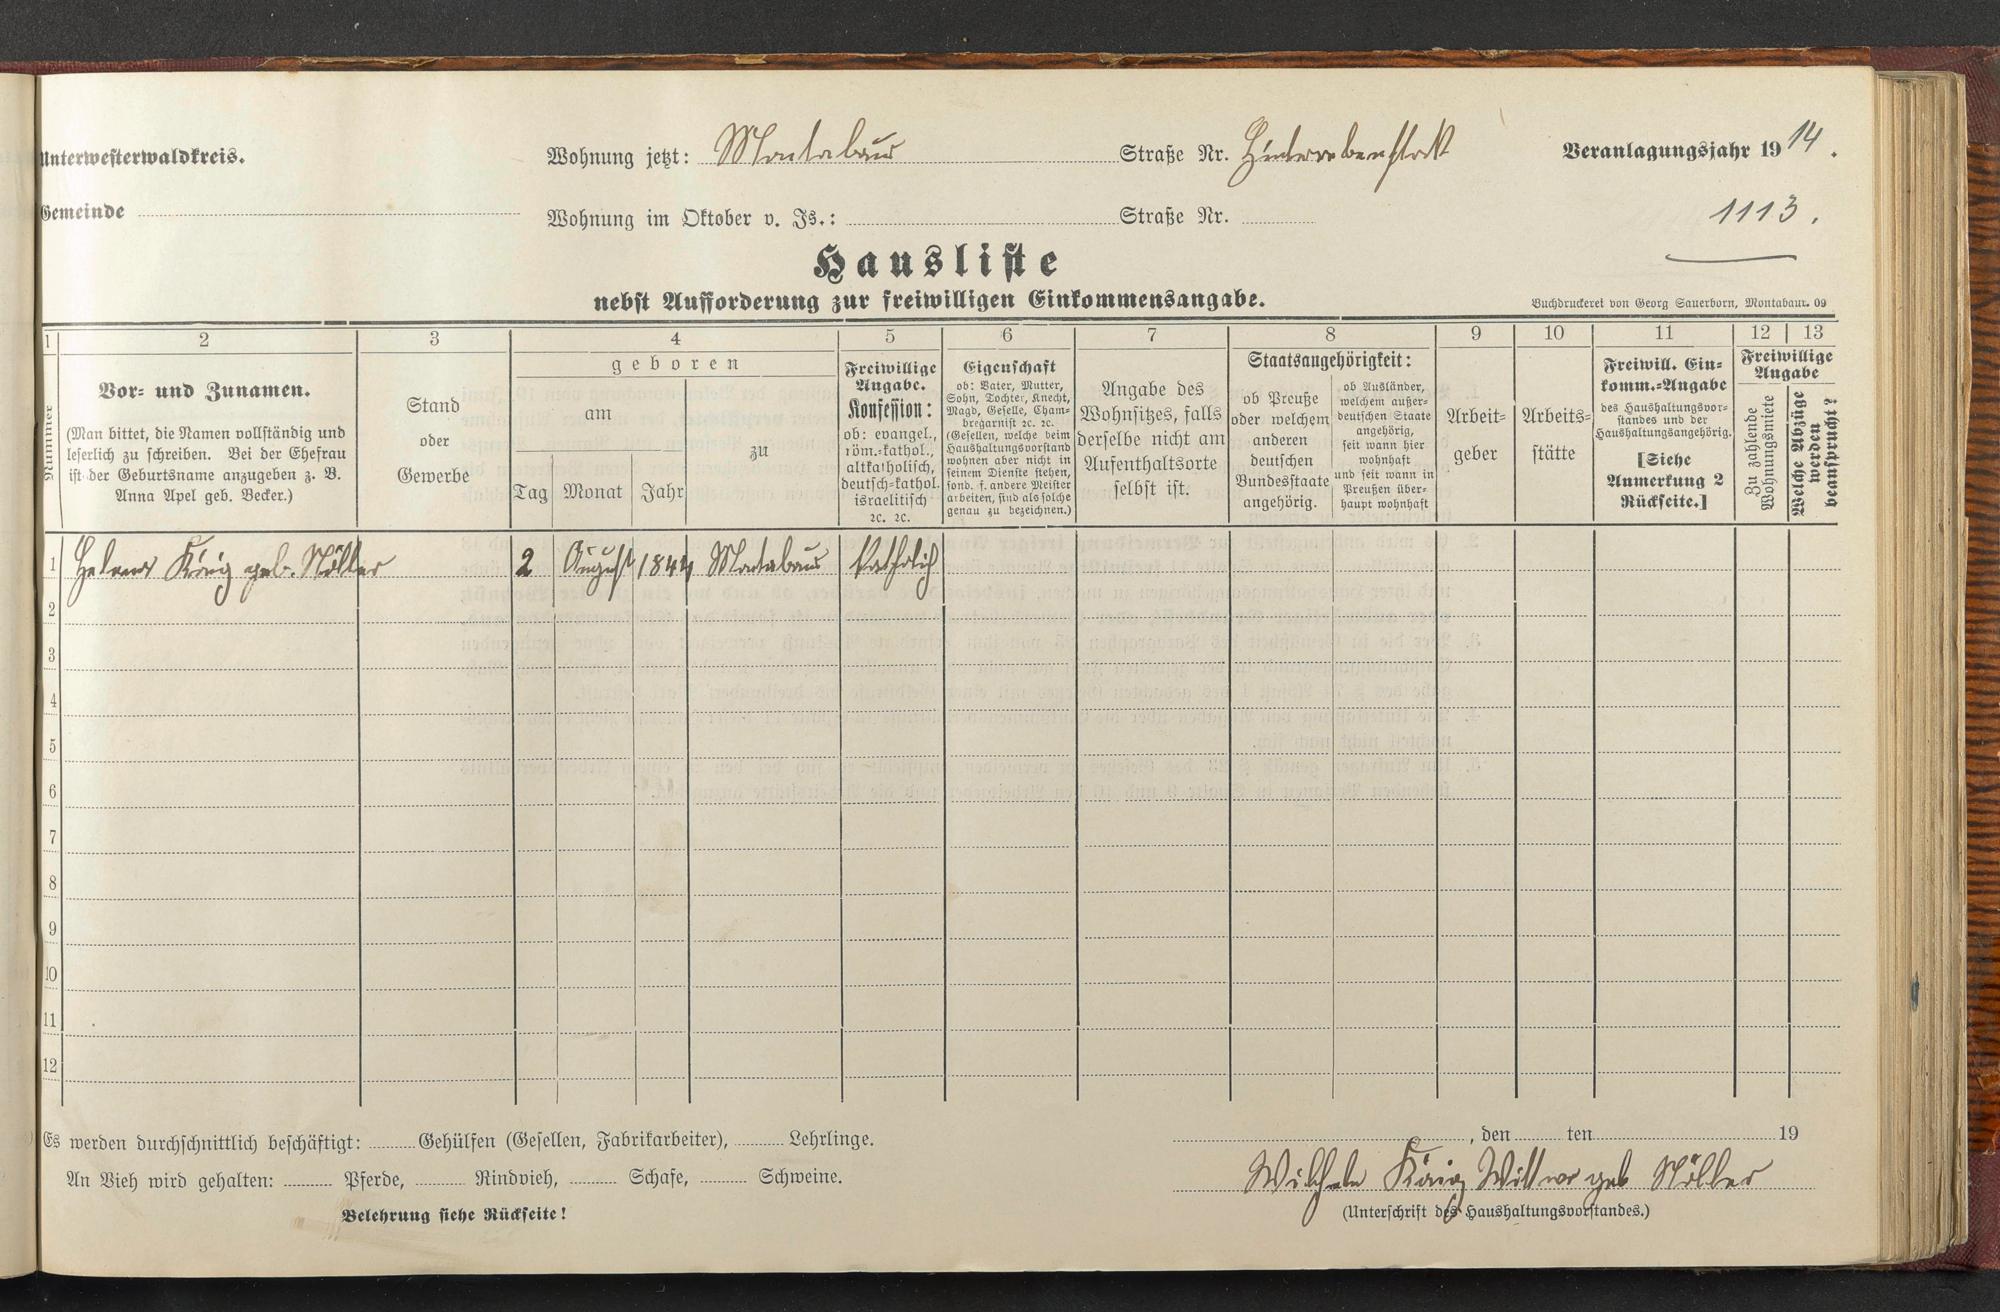 Unterwesterwaldkreis.
Wohnung jetzt: Montabaur Straße Nr.
Veranlagungsjahr 1914.
Gemeinde
Wohnung im Oktober v. Js.: Straße Nr.
1113.
Hausliste
nebst Aufforderung zur freiwilligen Einkommensangabe.
Buchdruckerei von Georg Sauerborn, Montabaur. 09
1 2 3 4 5 6 7 8 9 10 11 12 13
Nummer
Vor- und Zunamen.
(Man bittet, die Namen vollständig und
leserlich zu schreiben. Bei der Ehefrau
ist der Geburtsname anzugeben z. B.
Anna Apel geb. Becker.)
Stand
oder
Gewerbe
geboren
am
zu
Tag Monat Jahr
Freiwillige
Angabe.
Konfession:
ob: evangel.,
röm.-kathol.,
altkatholisch,
deutsch-kathol.
israelitisch
ꝛc. ꝛc.
Eigenschaft
ob: Vater, Mutter,
Sohn, Tochter, Knecht,
Magd, Geselle, Cham-
bregarnist ꝛc. ꝛc.
(Gesellen, welche beim
Haushaltungsvorstand
wohnen aber nicht in
seinem Dienste stehen,
sond. f. andere Meister
arbeiten, sind als solche
genau zu bezeichnen.)
Angabe des
Wohnsitzes, falls
derselbe nicht am
Aufenthaltsorte
selbst ist.
Staatsangehörigkeit:
ob Preuße
oder welchem
anderen
deutschen
Bundesstaate
angehörig.
ob Ausländer,
welchem außer-
deutschen Staate
angehörig,
seit wann hier
wohnhaft
und seit wann in
Preußen über-
haupt wohnhaft
Arbeit-
geber
Arbeits-
stätte
Freiwill. Ein-
komm.-Angabe
des Haushaltungsvor-
standes und der
Haushaltungsangehörig.
[Siehe
Anmerkung 2
Rückseite.]
Freiwillige
Angabe
Zu zahlende
Wohnungsmiete
Welche Abzüge
werden
beansprucht?
1 Helena König geb. Nöller 2 August 1844 Montabaur Katholich
2
3
4
5
6
7
8
9
10
11
12
Es werden durchschnittlich beschäftigt: Gehülfen (Gesellen, Fabrikarbeiter), Lehrlinge.
An Vieh wird gehalten: Pferde, Rindvieh, Schafe, Schweine.
Belehrung siehe Rückseite!
, den ten 19
Wilhelm König Wittwe geb Nöller
(Unterschrift des Haushaltungsvorstandes.)